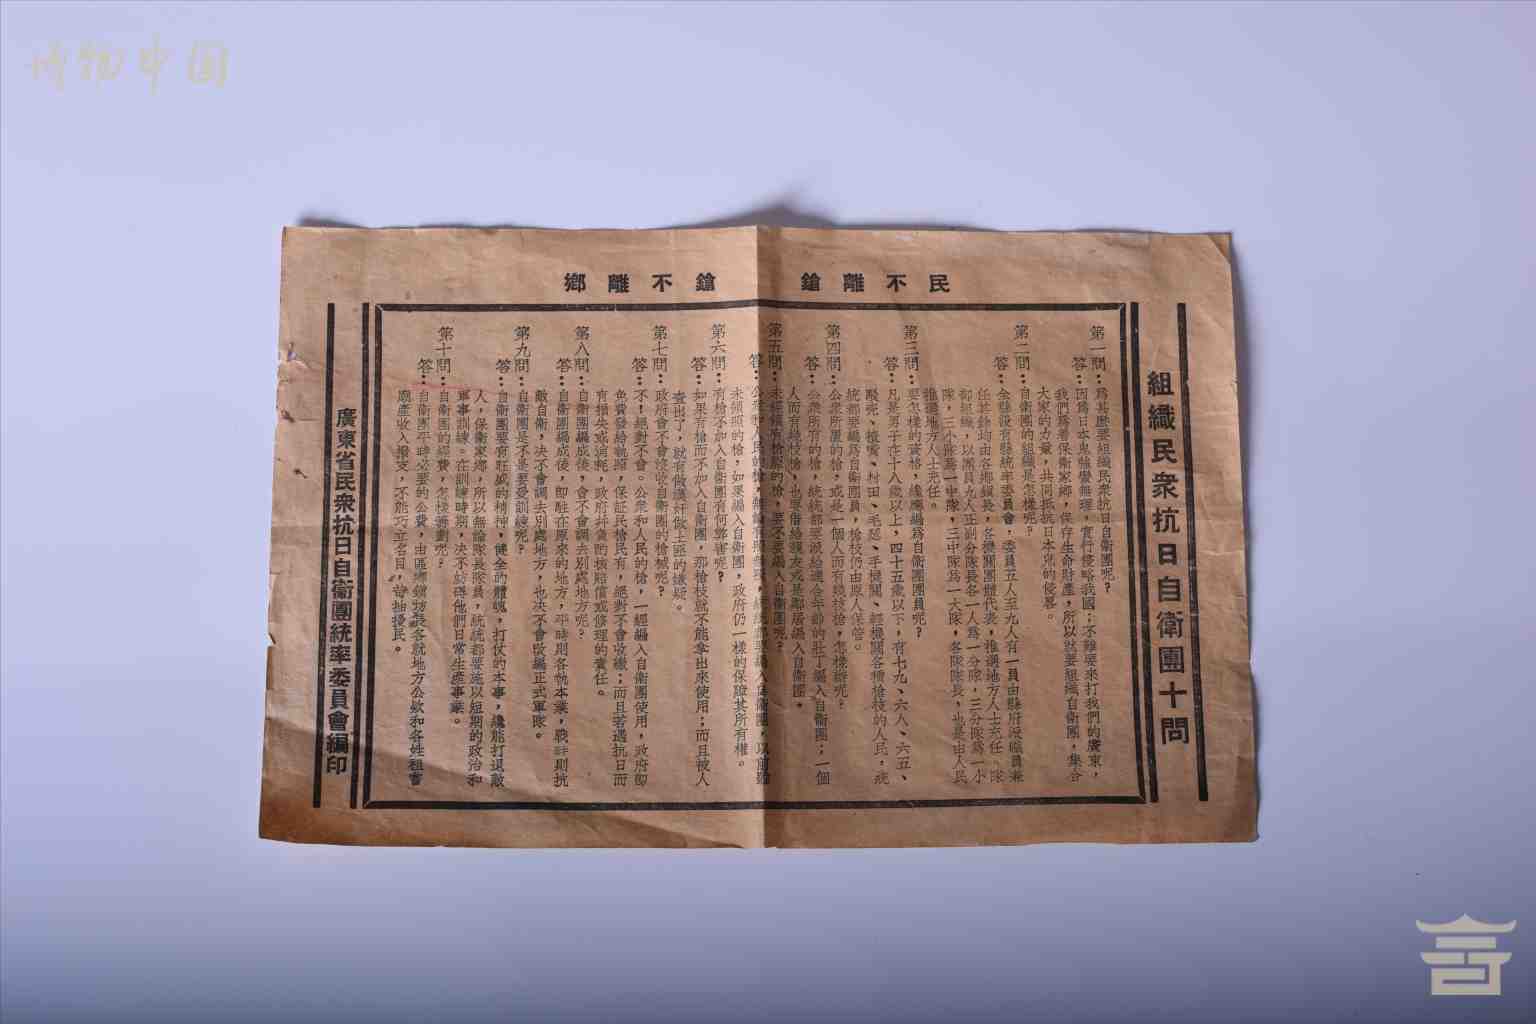 博物中国
民不離鎗 鎗不離鄉
組織民衆抗日自衛團十問
第一問：爲甚麽要組織民衆抗日自衛團呢？
答：因爲日本鬼蠻無理，實行侵略我國；不難要來打我們的廣東，
我們爲着保衛家鄉，保存生命財產，所以就要組織自衛團，集合
大家的力量，共同抵抗日本鬼的侵畧。
第二問：自衛團的組織是怎樣呢？
答：全縣設有縣統率委員會，委員五人至九人有一員由縣府派職員兼
任其餘均由各鄉鎮長，各機關團體代表，推選地方人士充任。隊
部組織，以團員九人正副分隊長各一人爲一分隊，三分隊爲一小
隊，三小隊爲一中隊，三中隊爲一大隊，各隊隊長，也是由人民
推選地方人士充任。
第三問：要怎樣的資格，纔應編爲自衛團團員呢？
答：凡是男子在十八歲以上，四十五歲以下，有七九、六八、六五、
駁壳、機關、各種槍枝的人民，統
統都要編爲自衛團員，槍枝仍由原人保管。
第四問：公衆所置的槍，或是一個人而有幾枝槍，怎樣辦呢？
答：公衆所有的槍，統統都要派給適合年齡的壯丁編入自衛團；一個
人而有幾枝槍，也要借給親友或是鄰居編入自衛團。
第五問：未經領有槍照的槍，要不要編入自衛團呢？
答：公衆和人民的槍，無論有照無照，統統都要編入自衛團，以前雖
未領照的槍，如果編入自衛團，政府仍一樣的保障其所有權。
第六問：有槍不加入自衛團有何弊害呢？
答：如果有槍而不加入自衛團，那槍枝就不能拿出來使用；而且被人
查出了，就有做漢奸做土匪的嫌疑。
第七問：政府會不會沒收自衛團的槍械呢？
答：不！絕對不會。公衆和人民的槍，一經編入自衛團使用，政府即
免費發給執照，保証民槍民有，絕對不會收繳；而且若遇抗日而
有損失或消耗，政府幷負酌核賠償或修理的責任。
第八問：自衛團編成後，會不會調去別處地方呢？
答：自衛團編成後，即駐在原來的地方，平時則各執本業，戰時則抗
敵自衛，决不會調去別處地方，也决不會改編正式軍隊。
第九問：自衛團是不是要受訓練呢？
答：自衛團要有旺盛的精神，健全的體魄，打仗的本事，纔能打退敵
人，保衛家鄉，所以無論隊長隊員，統統都要施以短期的政治和
軍事訓練。在訓練時期，决不妨碍他們日常生產事業。
第十問：自衛團的經費，怎樣籌劃呢？
答：自衛團平時必要的公費，由區鄉鎮坊長各就地方公欵和各姓祖嘗
廟產收入撥支，不能巧立名目，苛抽擾民。
廣東省民衆抗日自衛團統率委員會編印